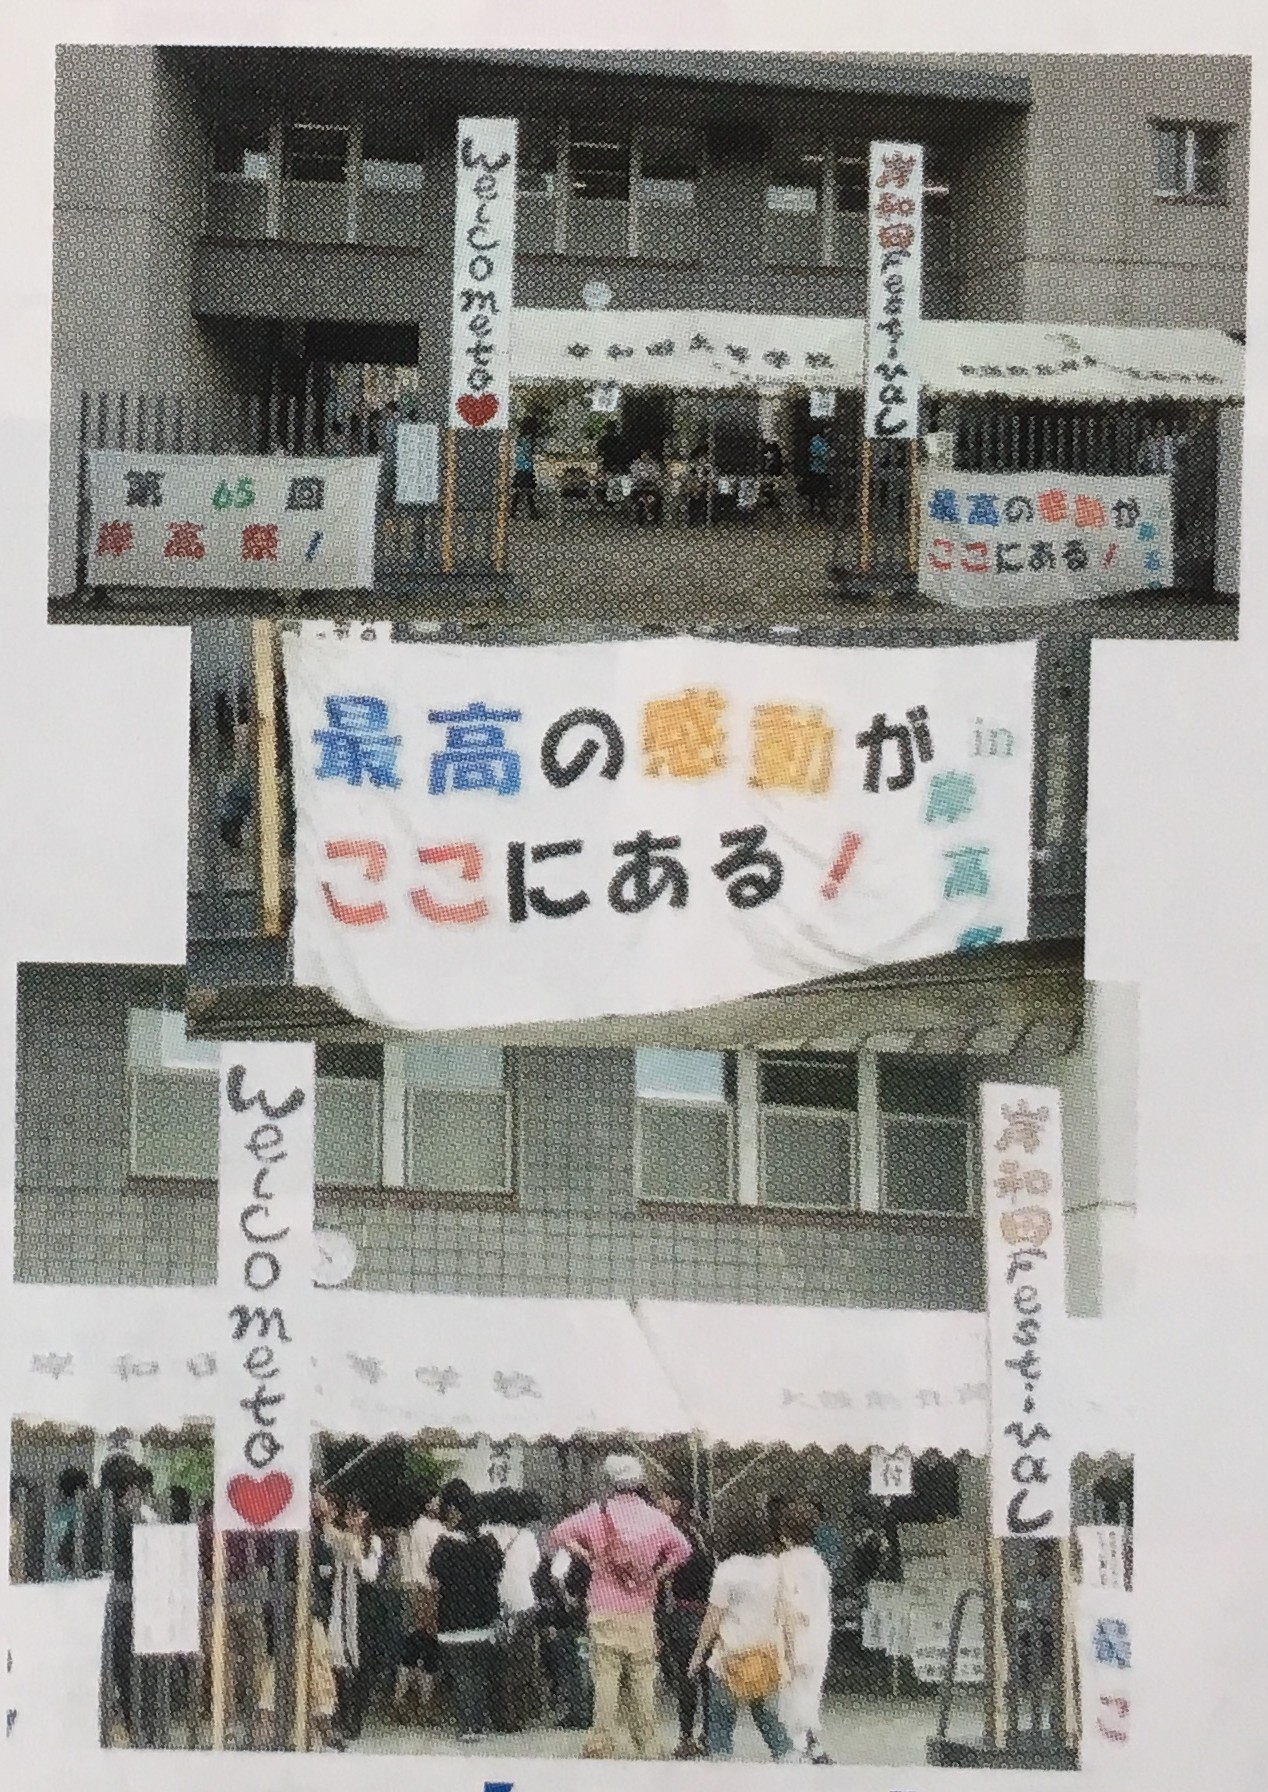 Welcome to
岸和田Festival
岸和田高等学校
第65回
岸高祭!
最高の感動が
ここにある!
最高の感動が
ここにある!
in
岸高祭
Welcome to
岸和田Festival
岸和田高等学校
受付